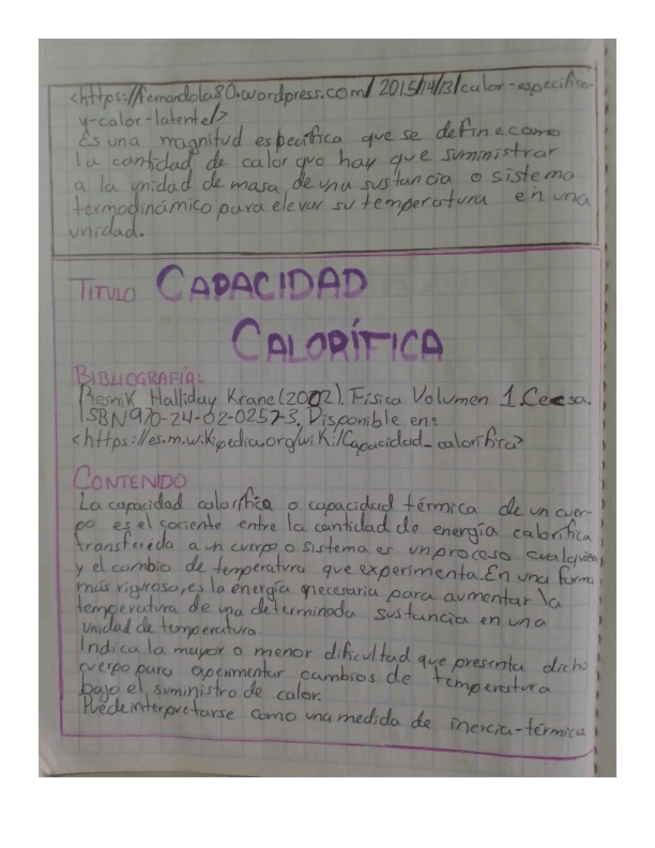 <https://fernandola80.wordpress.com/2015/14/13/calor-especifico-
y-calor-latente/>
Es una magnitud específica que se define como
la cantidad de calor que hay que suministrar
a la unidad de masa de una sustancia o sistema
termodinámico para elevar su temperatura en una
unidad.
TITULO CAPACIDAD
CALORÍFICA
BIBLIOGRAFÍA:
Resnik Halliday Krane (2002). Física Volumen 1. Cecsa.
ISBN 970-24-02-0257-3. Disponible en:
<https://es.m.wikipedia.org/wiki/Capacidad_calorífica>
CONTENIDO
La capacidad calorífica o capacidad térmica de un cuer-
po es el cociente entre la cantidad de energía calorífica
transferida a un cuerpo o sistema es un proceso cualquiera
y el cambio de temperatura que experimenta. En una forma
más rigurosa, es la energía necesaria para aumentar la
temperatura de una determinada sustancia en una
unidad de temperatura.
Indica la mayor o menor dificultad que presenta dicho
cuerpo para experimentar cambios de temperatura
bajo el suministro de calor.
Puede interpretarse como una medida de inercia-térmica